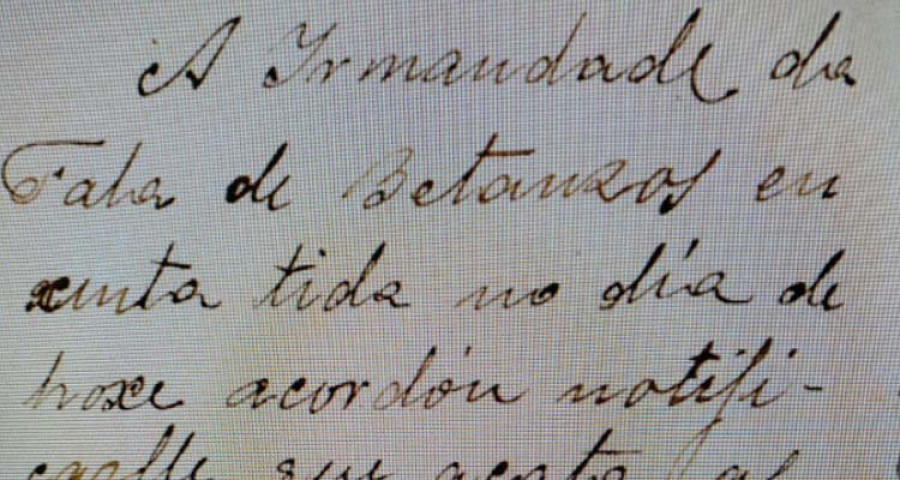 A Irmandade da
Fala de Betanzos en
xunta tida no día de
hoxe acordón notifi-
carlle que acata as